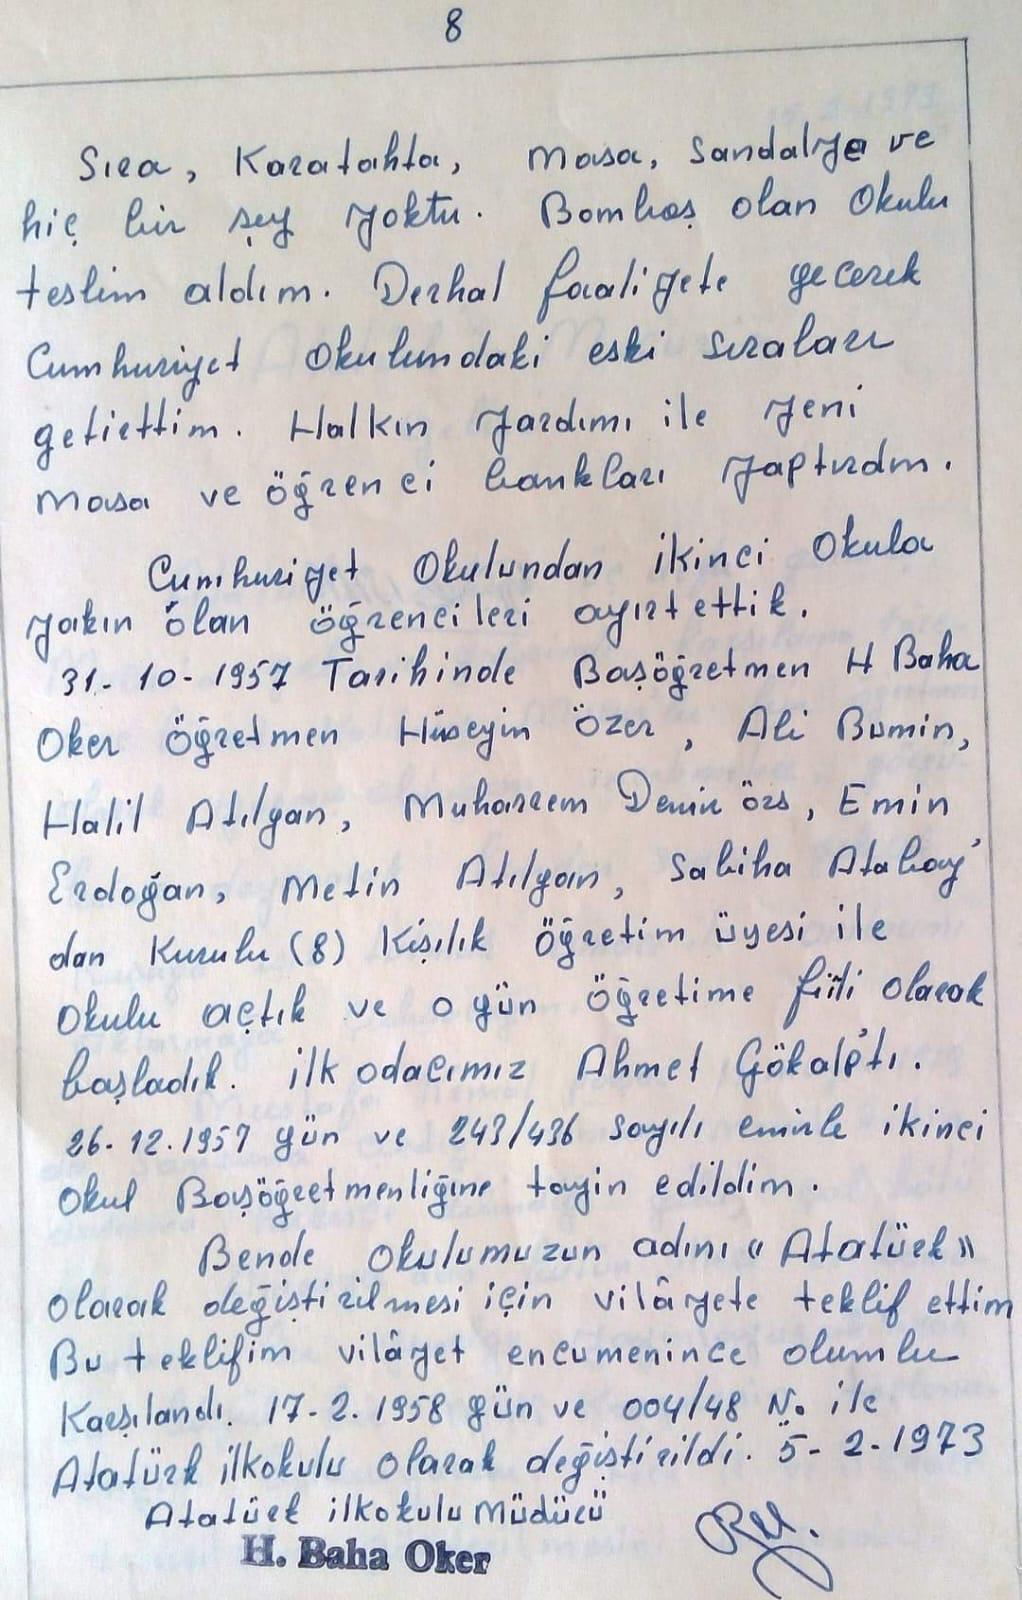 8
Sıra, Karatahta, Masa, Sandalye ve
hiç bir şey yoktu. Bomboş olan Okulu
teslim aldım. Derhal faaliyete geçerek
Cumhuriyet Okulundaki eski sıraları
getirttim. Halkın yardımı ile yeni
Masa ve öğrenci bankları yaptırdım.
Cumhuriyet Okulundan ikinci Okula
yakın olan öğrencileri ayırt ettik.
31-10-1957 Tarihinde Başöğretmen H Baha
Oker öğretmen Hüseyin Özer, Ali Bumin,
Halil Atılgan, Muharrem Demir örs, Emin
Erdoğan, Metin Atılgan, Sabiha Atabay'
dan Kurulu (8) Kişilik öğretim üyesi ile
Okulu açtık ve o gün öğretime fiili olarak
başladık. ilk odacımız Ahmet Gökalp'tı.
26-12.1957 gün ve 243/436 sayılı emirle ikinci
Okul Başöğretmenliğine tayin edildim.
Bende Okulumuzun adını « Atatürk »
olarak değiştirilmesi için vilâyete teklif ettim
Bu teklifim vilâyet encumenince olumlu
Karşılandı. 17-2.1958 gün ve 004/48 No ile
Atatürk ilkokulu olarak değiştirildi. 5-2-1973
Atatürk ilkokulu Müdürü
H. Baha Oker